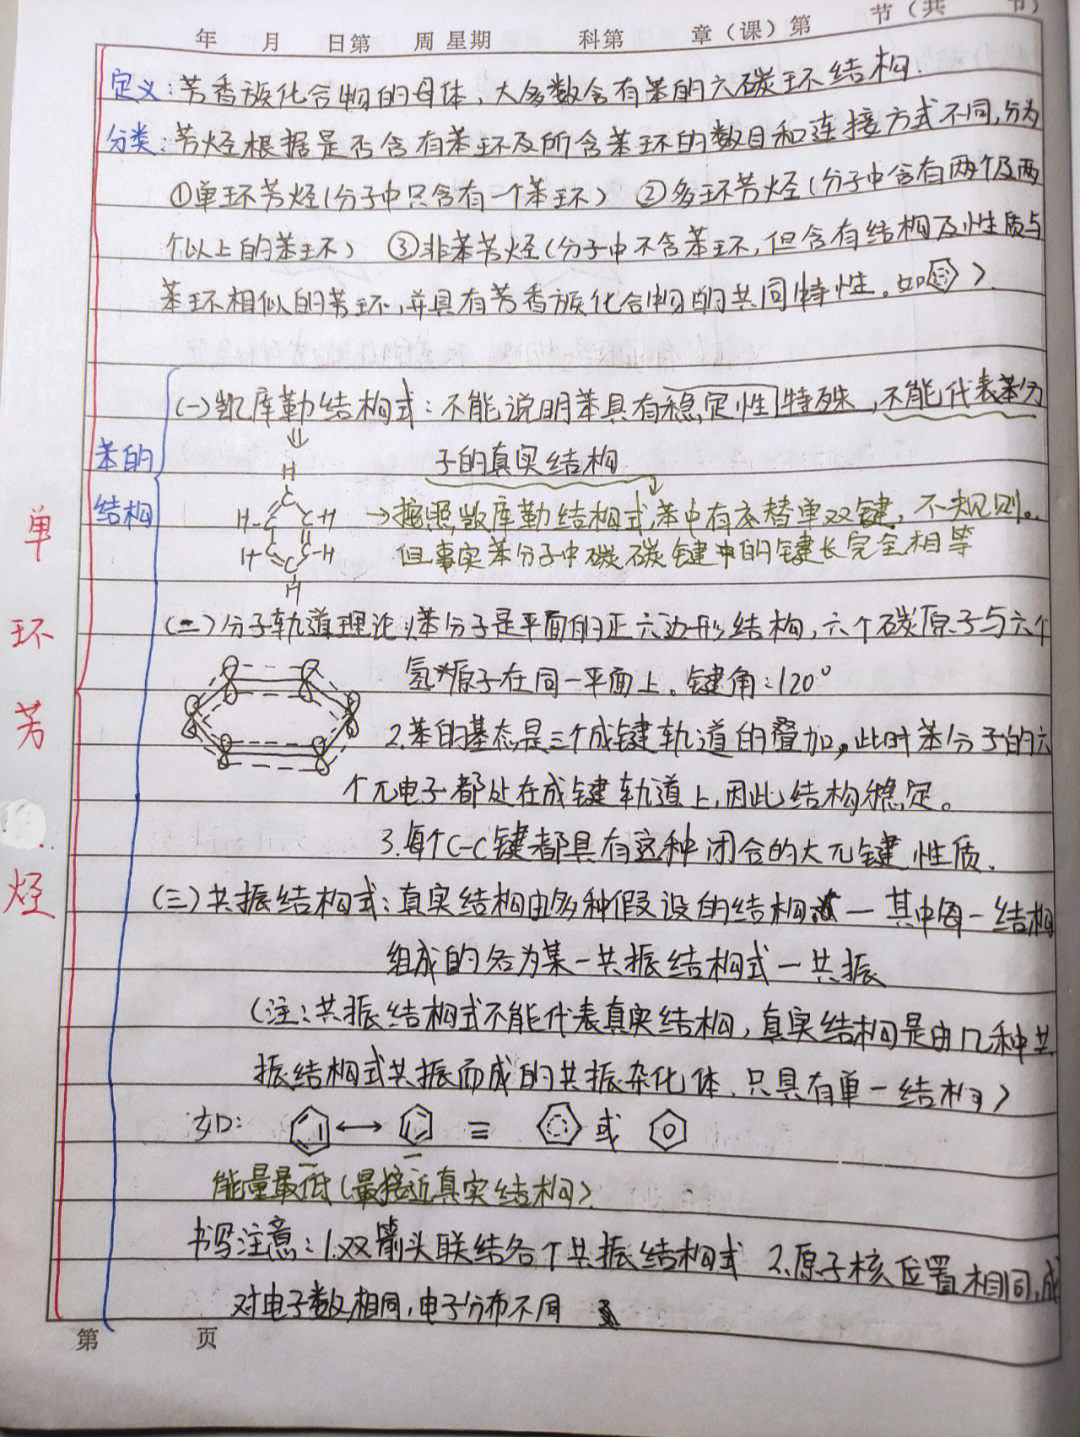 年 月 日第 周 星期 科第 章（课）第 节（共 节）
定义：芳香族化合物的母体，大多数含有苯的六碳环结构．
分类：芳烃根据是否含有苯环及所含苯环的数目和连接方式不同，分为
①单环芳烃（分子中只含有一个苯环） ②多环芳烃（分子中含有两个及两
个以上的苯环） ③非苯芳烃（分子中不含苯环，但含有结构及性质与
苯环相似的芳环，并具有芳香族化合物的共同特性。如 ）
苯的结构
(一)凯库勒结构式：不能说明苯具有稳定性特殊，不能代表苯分
子的真实结构
H
C
H-C C-H
→按照凯库勒结构式，苯中有交替单双键，不规则。
H-C C-H
C
H
但事实苯分子中碳碳键中的键长完全相等
(二)分子轨道理论：1.苯分子是平面的正六边形结构，六个碳原子与六个
氢原子在同一平面上。键角：120°
2.苯的基态是三个成键轨道的叠加，此时苯分子的六
个π电子都处在成键轨道上，因此结构稳定。
3.每个C-C键都具有这种闭合的大π键性质．
(三)共振结构式：真实结构由多种假设的结构 — 其中每一结构
组成的名为某一共振结构式—共振
（注：共振结构式不能代表真实结构，真实结构是由几种共
振结构式共振而成的共振杂化体．只具有单一结构）
如： ↔ ≡ 或
能量最低（最接近真实结构）
书写注意：1.双箭头联结各个共振结构式 2.原子核位置相同，成
对电子数相同，电子分布不同
第 页
单环芳烃